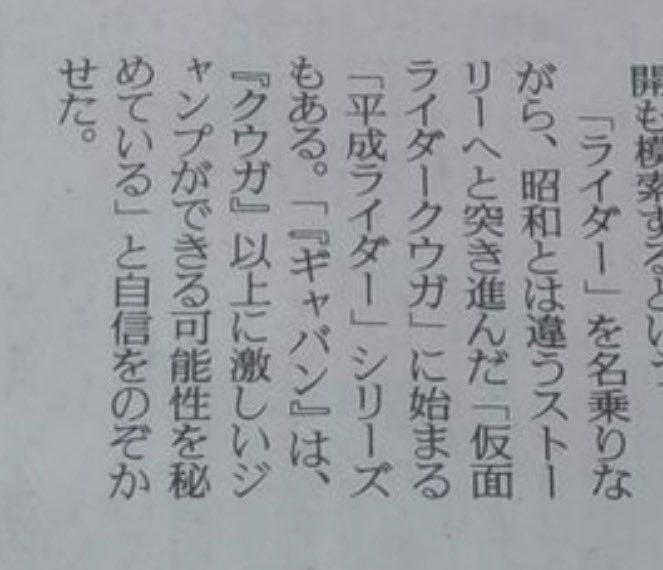 開も模索するという
「ライダー」を名乗りな
がら、昭和とは違うストー
リーへと突き進んだ「仮面
ライダークウガ」に始まる
「平成ライダー」シリーズ
もある。「『ギャバン』は、
『クウガ』以上に激しいジ
ャンプができる可能性を秘
めている」と自信をのぞか
せた。